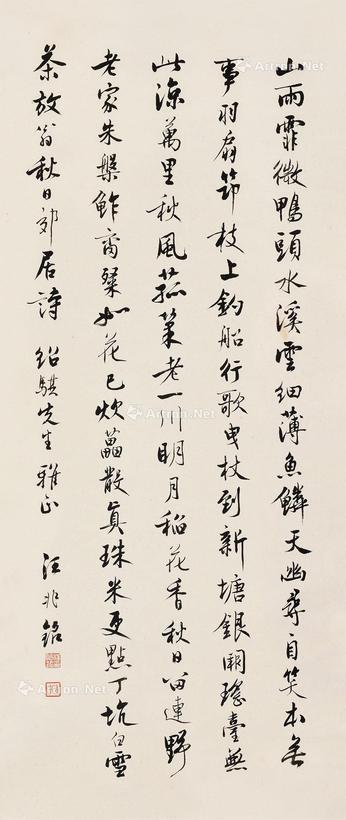 山雨霏微鸭頭水溪雲細薄魚鱗天幽尋自笑本無
事羽扇筇枝上釣船行歌曳杖到新塘銀闕瑤臺無
此涼萬里秋風菰菜老一川明月稻花香秋日留連野
老家朱槃鮓臠粲如花已炊藟散真珠米更點丁坑白雪
茶放翁秋日郊居詩 紹騏先生雅正 汪兆銘